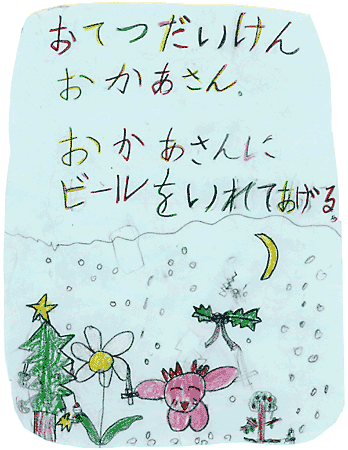 おてつだいけん
おかあさん。
おかあさんに
ビールをいれてあげる。